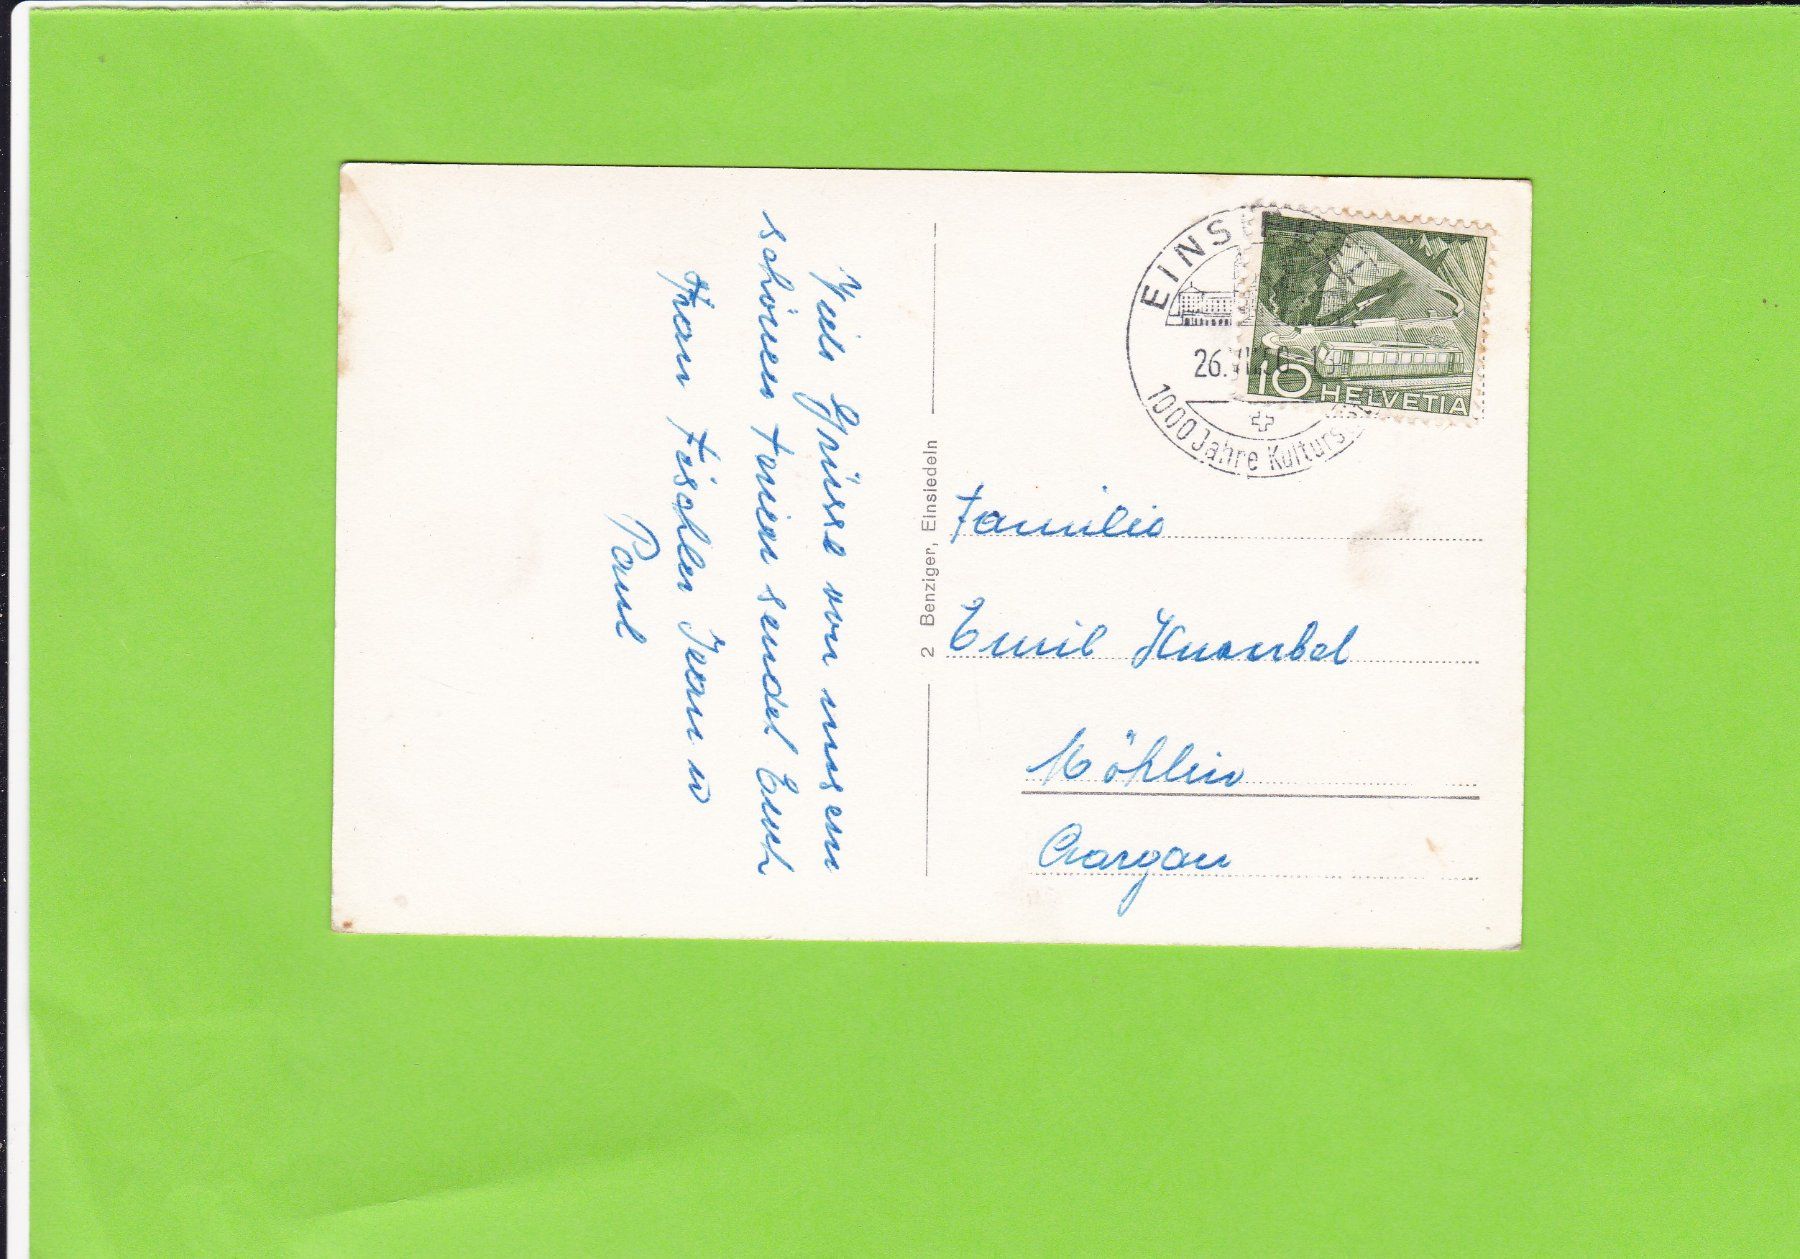 Viele Grüsse von unsern
schönen Ferien sendet Euch
Fam Fischler Iwan u
Paul
2 Benziger, Einsiedeln
EINSIEDELN
26.VII.50-13
1000 Jahre Kulturs
10 HELVETIA
Familie
Emil
Möhlin
Aargau